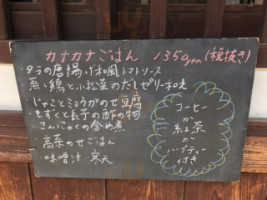 カナカナごはん 1350yen (税抜き)
・タラの唐揚げ和風トマトソース
・蒸し鶏と小松菜のだしゼリー和え
・じゃことミョウガのせ豆腐
・もずくと長芋の酢の物
・こんにゃくの炒め煮
・高菜のせごはん
・味噌汁 寒天
コーヒー
か
紅茶
か
ハーブティー
付き